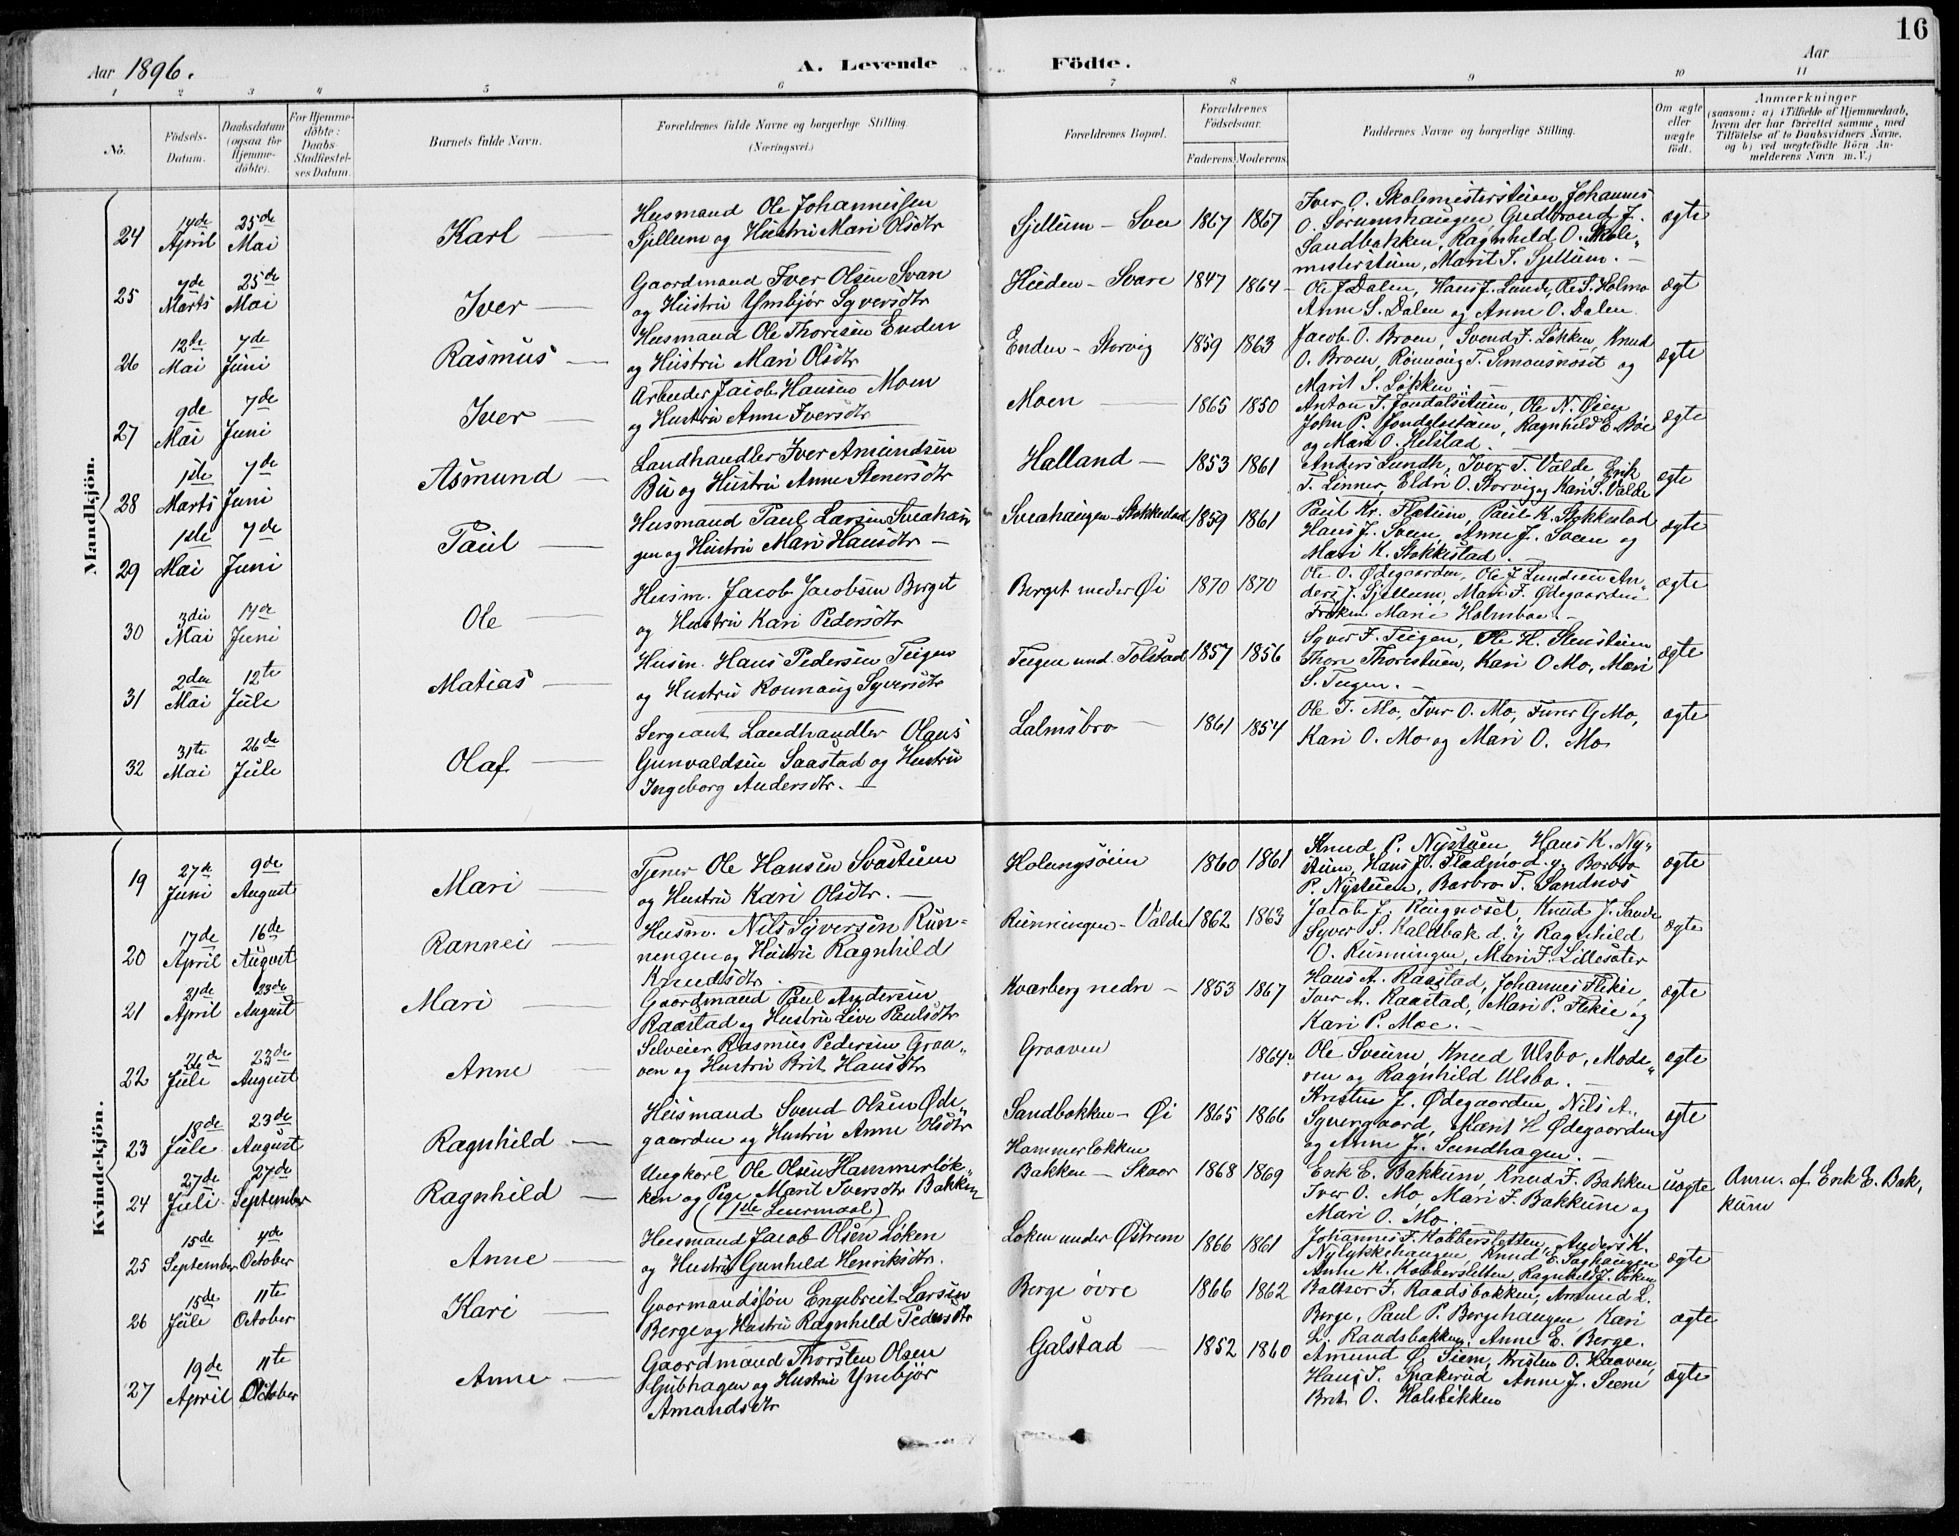 16
Aar 1896.
A. Levende Födte.
Aar
1 2 3 4 5 6 7 8 9 10 11
No.
Födsels-Datum.
Daabsdatum (ogsaa for Hjemme-döbte).
For Hjemme-döbte: Daabs-Stadfæstel-ses Datum.
Barnets fulde Navn.
Forældrenes fulde Navne og borgerlige Stilling.
(Næringsvei.)
Forældrenes Bopæl.
Forældrenes Födselsaar.
Faderens. Moderens.
Faddernes Navne og borgerlige Stilling.
Om ægte eller uægte födt.
Anmærkninger
(saasom: a) i Tilfælde af Hjemmedaab, hvem der har forrettet samme, med Tilföielse af to Daabsvidners Navne, og b) ved uægtefödte Börn An-melderens Navn m. V.)
Mandkjön.
24 14de April 25de Mai Karl
Husmand Ole Johannessen
Sjellum og Hustru Mari Olsdtr
Sjellum – Svee 1867 1867
Iver O. Skolemesterstuen, Johannes
O. Sorumshaugen, Gudbrand J.
Sandbakken, Ragnhild O. Skole-
mesterstuen, Marit J. Sjellum. –
ægte
25 7de Marts 25de Mai Iver
Gaardmand Iver Olsen Svare
og Hustru Ymbjør Syversdtr
Heiden – Svare 1847 1864
Ole J. Dalen, Hans J. Lunde, Ole S. Holmo
Anne S. Dalen og Anne O. Dalen
ægt
26 12te Mai 7de Juni Rasmus
Husmand Ole Thoresen Enden
og Hustru Mari Olsdtr
Enden – Storvig 1859 1863
Jacob O. Broen, Svend J. Løkken, Knud
O. Broen, Rønnaug T. Simonsnoset og
Marit S. Løkken
ægte
27 9de Mai 7de Juni Iver
Arbeider Jacob Hansen Moen
og Hustru Anne Iversdtr
Moen 1865 1850
Anton J. Jondalstuen, Ole N. Øien
John P. Jondalstuen, Ragnhild E. Bøe
og Mari O. Helstad
ægte
28 1ste Marts 7de Juni Asmund
Landhandler Iver Amundsen
Bu og Hustru Anne Stenersdtr
Halland – 1853 1861
Anders Sundh, Iver T. Valde, Erik
T. Linner, Eldri O. Storvig og Kari S. Valde
ægte
29 1ste Mai 7de Juni Paul
Husmand Paul Larsen Sveahau
gen og Hustru Mari Hansdtr –
Sveahaugen – Stokkestad 1859 1861
Paul Kr. Flatum, Paul K. Stokkestad
Hans J. Sveen, Anne J. Sveen og
Mari K. Stokkestad.
ægte
30 3die Mai 14de Juni Ole
Husm. Jacob Jacobsen Berget
og Hustru Kari Pedersdtr
Berget under Øi 1870 1870
Ole O. Ødegaarden, Ole J. Lundein An-
ders J. Sjellum, Mari J. Ødegaarden
Frøken Marie Holmboe. –
ægte
31 2den Mai 12te Jule Matias
Husm. Hans Pedersen Teigen
og Hustru Rønnaug Syversdtr
Teigen und. Tolstad 1857 1856
Syver J. Teigen, Ole H. Stenstuen
Thore Thorestuen, Kari O. Mo, Mari
S. Teigen. –
ægte
32 31te Mai 26de Jule Olaf
Sergeant Landhandler Olaus
Gunvaldsen Saastad og Hustru
Ingeborg Andersdtr. –
Lalmsbro – 1861 1854
Ole T. Mo, Iver O. Mo, Furer G. Mo,
Kari O. Mo og Mari O. Mo
ægte
Kvindekjön.
19 27de Juni 9de August Mari
Tjener Ole Hansen Svastuen
og Hustru Kari Olsdtr. –
Holungsøien 1860 1861
Knud P. Nystuen, Hans K. Ny-
stuen, Hans J. Fladmo d. y. Barbro
P. Nystuen, Barbro T. Sandnes
ægte
20 17de April 16de August Rannei
Husm. Nils Syversen Run-
ningen og Hustru Ragnhild
Knudsdtr.
Runningen – Valde 1862 1863
Jacob J. Ringnoset, Knud J. Sande
Syver S. Kaldbak d. y. Ragnhild
O. Runningen, Mari J. Lillesæter
ægte
21 21de April 23de August Mari
Gaardmand Paul Andersen
Raastad og Hustru Live Paulsdtr
Kvarberg nedre – 1853 1867
Hans A. Raastad, Johannes Flekie,
Iver A. Raastad, Mari P. Flekie og
Kari P. Moe. –
ægte
22 26de Jule 23de August Anne
Selveier Rasmus Pedersen Graa-
ven og Hustru Brit Hansdtr
Graaven 1864
Ole Sveum, Knud Ulsbo, Mode-
ren og Ragnhild Ulsbo. –
ægte
23 18de Jule 23de August Ragnhild
Husmand Svend Olsen Øde-
gaarden og Hustru Anne Olsdtr
Sandbakken – Øi 1865 1866
Kristen J. Ødegaarden, Nils A.
Syvergaard, Marit H. Ødegaarden
og Anne J. Sundhagen. –
ægte
24 27de Juli 27de September Ragnhild
Ungkarl Ole Olsen Hammerløk-
ken og Pige Marit Iversdtr Bakken
(1ste Leiermaal)
Hammerløkken
Bakken – Skaar 1868 1869
Erik E. Bakkum, Knud J. Bakken
Iver O. Mo, Mari J. Bakkene og
Mari O. Mo.
uægte
Anm. af Erik E. Bak-
kum
25 15de September 4de October Anne
Husmand Jacob Olsen Løken
og Hustru Gunhild Henriksdtr.
Løken under Østrem 1866 1861
Johannes F. Kobbersletten, Anders K.
Nyløkkehaugen, Knud E. Saghaugen
Anne K. Kobbersletten, Ragnhild J. Løken
ægte
26 15de Jule 11te October Kari
Gaarmandssøn Engebreit Larsen
Berge og Hustru Ragnhild Pedersdtr
Berge øvre 1866 1862
Baltser J. Raadsbakken, Amund L.
Berge, Paul P. Bergehaugen Kari
L. Raadsbakken, Anne E. Berge.
ægte
27 19de April 11te October Anne
Gaardmand Thorsten Olsen
Gubhagen og Hustru Ymbjør
Amundsdtr
Galstad – 1852 1860
Amund Ø. Siem, Kristen O. Haaven
Hans J. Spakrud Anne J. Siem
Brit O. Holsløkken
ægte